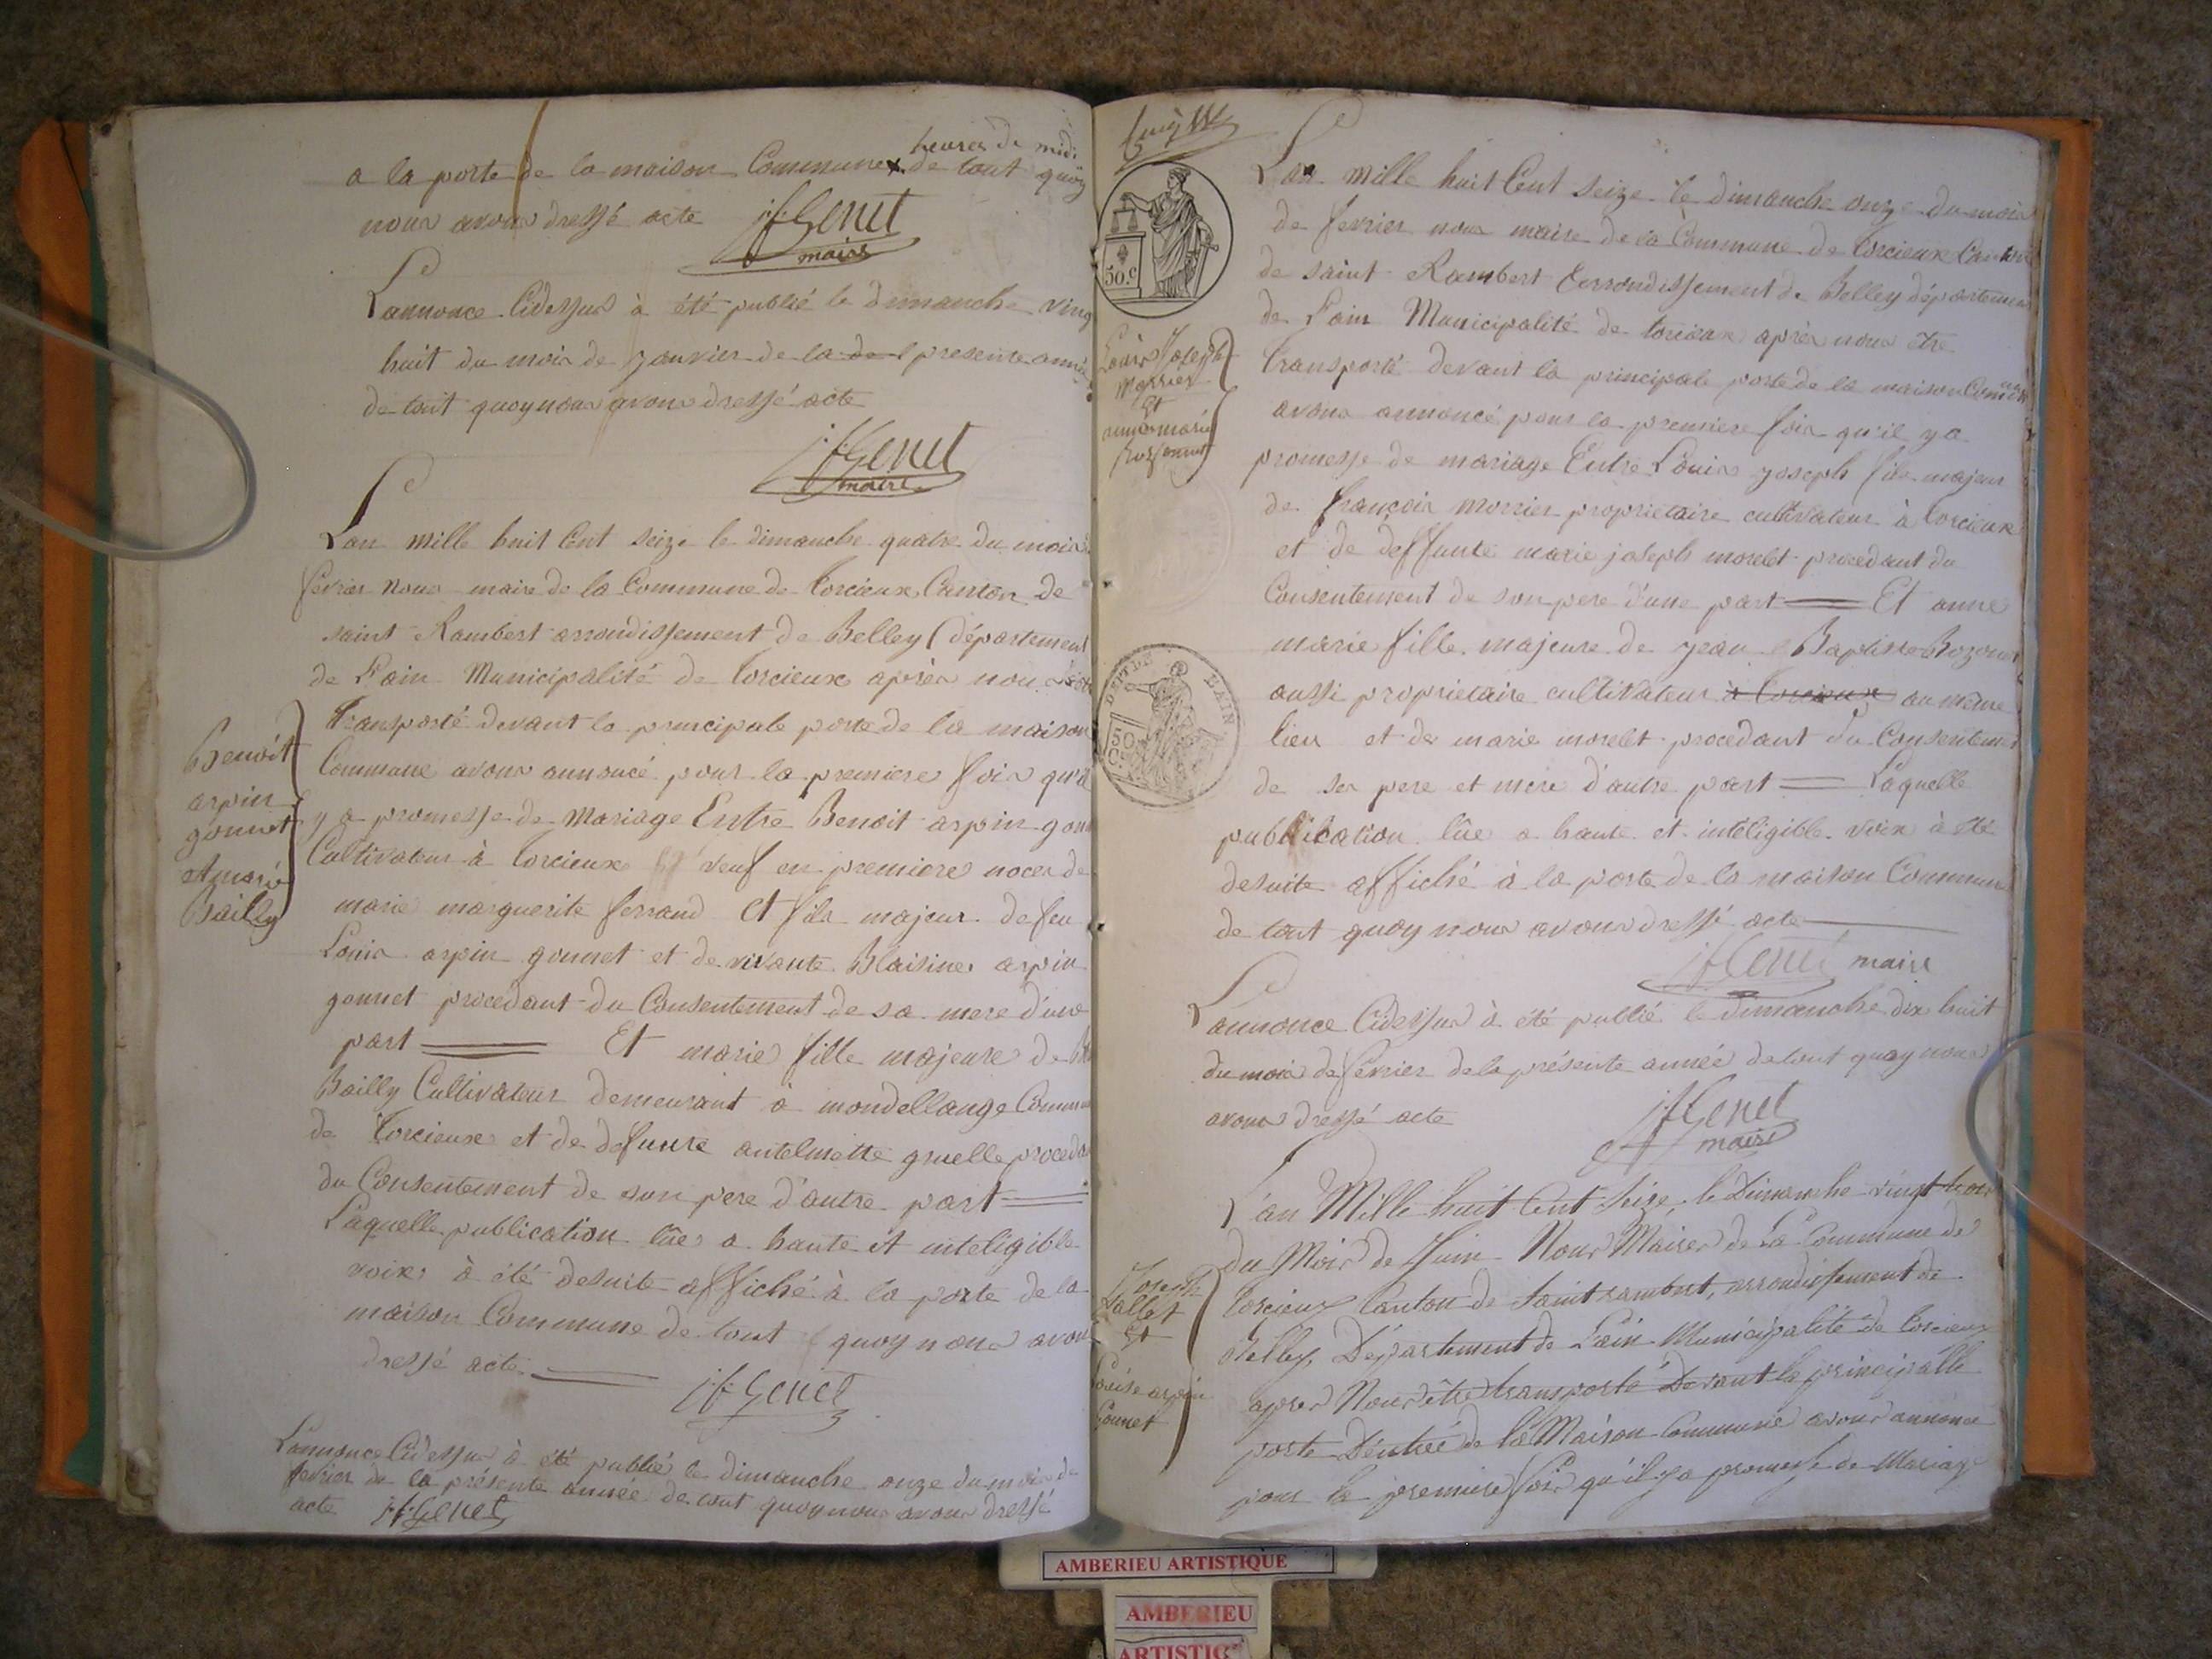 heures de midi
a la porte de la maison Commune x de tout quoy
nous avons dressé acte jfGenet
maire
Lannonce Cidessus à été publié le dimanche ving
huit du mois de janvier de la de l presente anné
de tout quoy nous avons dressé acte
jfGenet
maire
Lan mille huit Cent seize le dimanche quatre du mois
fevrier nous maire de la Commune de torcieux Canton de
saint Rambert arrondissement de Belley département
de Lain Municipalité de torcieux après nous être
transporté devant la principale porte de la maison
Commune avons annoncé pour la premiere fois qu'il
y a promesse de Mariage Entre Benoit arpin gonn
Cultivateur à torcieux veuf en premiere noces de
marie marguerite ferrand et fils majeur de feu
Louis arpin gonnet et de vivante Blaisine arpin
gonnet procedant du Consentement de sa mere d'une
part Et marie fille majeure de
Bailly Cultivateur demeurant à mondellange Commun
de torcieux et de defunte antelmette gruelle proceda
du Consentement de son pere d'autre part
Laquelle publication lûe a haute et inteligible
voix à été desuite affiché à la porte de la
maison Commune de tout quoy nous avons
dressé acte
jfGenet
Lannonce Cidessus à été publié le dimanche onze du mois de
fevrier de la présente année de tout quoy nous avons dressé
acte jfGenet
Benoit
arpin
gonnet
et marie
Bailly
50.c
Louis Joseph
Morrier
Et
anne marie
Bozonnet
DE L'AIN
50
C
Lan mille huit Cent seize le dimanche onze du mois
de fevrier nous maire de la Commune de torcieux Canton
de saint Rambert Errondissement de Belley département
de Lain Municipalité de torcieux après nous être
transporté devant la principale porte de la maison Commune
avons annoncé pour la premiere fois qu'il y a
promesse de mariage Entre Louis joseph fils majeur
de françois morrier proprietaire cultivateur à torcieux
et de deffunte marie joseph morelet procedant du
Consentement de son pere d'une part Et anne
marie fille majeure de jean Baptiste Bozonet
aussi proprietaire cultivateur à torcieux au même
lieu et de marie morelet procedant du Consentement
de ses pere et mere d'autre part Laquelle
publication lûe a haute et inteligible voix à été
desuite affiché à la porte de la maison Commune
de tout quoy nous avons dressé acte
jfGenet maire
Lannonce Cidessus à été publié le dimanche dix huit
du mois de fevrier de la présente année de tout quoy nous
avons dressé acte
jfGenet
maire
L'an Mille huit Cent Seize, le Dimanche vingt trois
du Mois de Juin Nous Maire de La Commune de
torcieux Canton de Saint rambert, arrondissement de
Belley, Département de Lain Municipalité de torcieux
après Nous être transporté Devant la principalle
porte Dentrée de la Maison Commune avons annoncé
pour la premiere fois qu'il y a promesse de Mariage
Joseph
Lallet
Et
Louise arpin
Gonnet
AMBERIEU ARTISTIQUE
AMBERIEU
ARTISTIQ